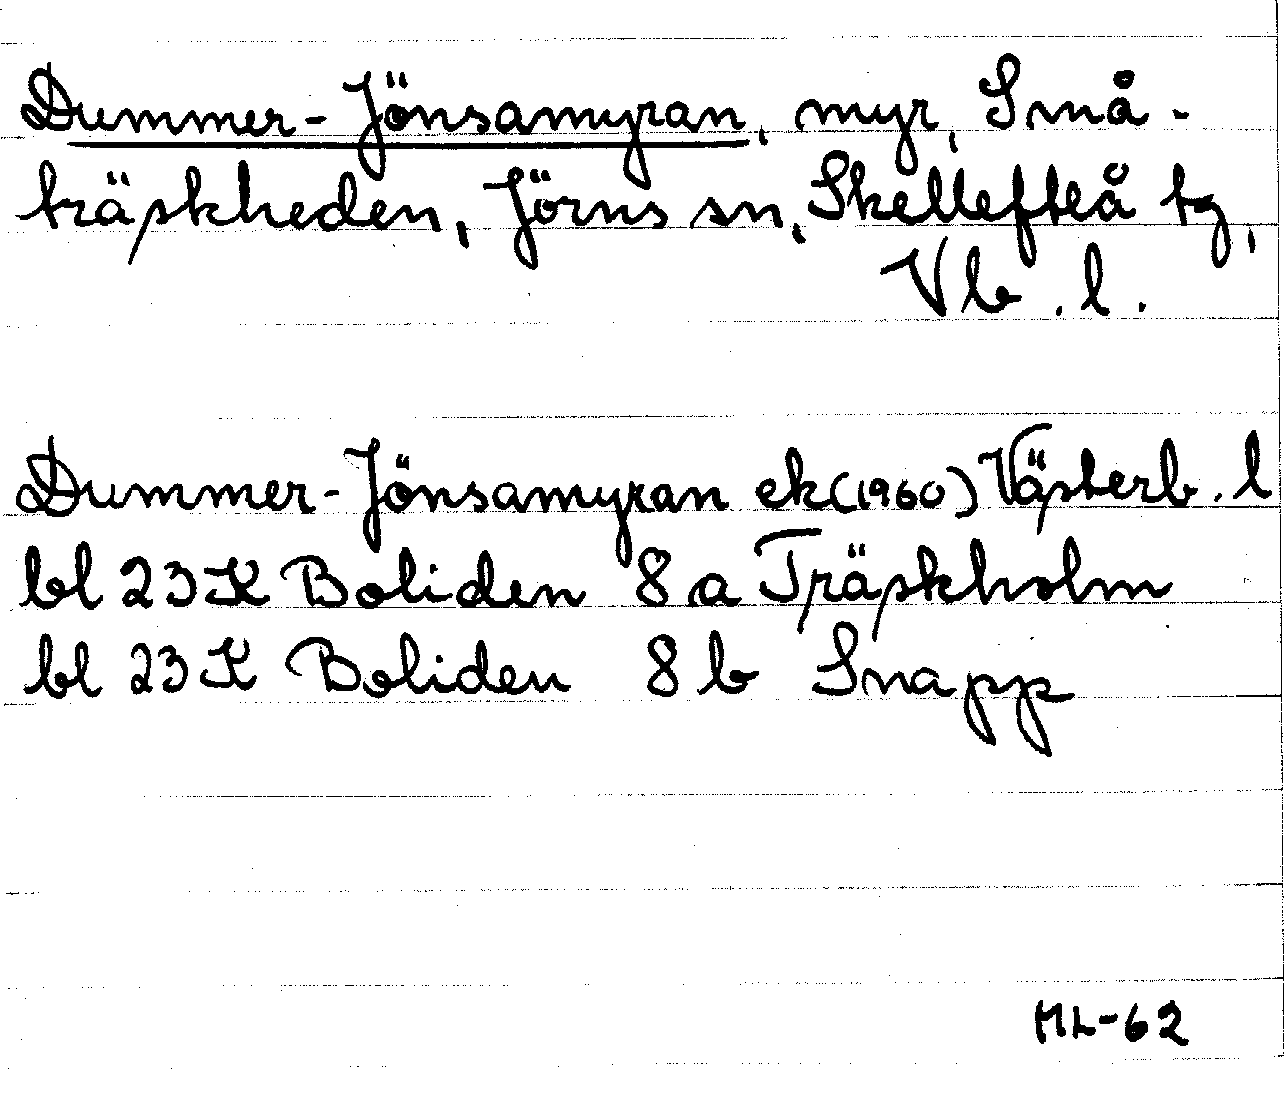 Dummer-Jönsamyran, myr, Små-
träskheden, Jörns sn, Skellefteå tg,
Vb. l.
Dummer-Jönsamyran ek (1960) Västerb. l
bl 23 K Boliden 8 a Träskholm
bl 23 K Boliden 8 b Snapp
ML-62